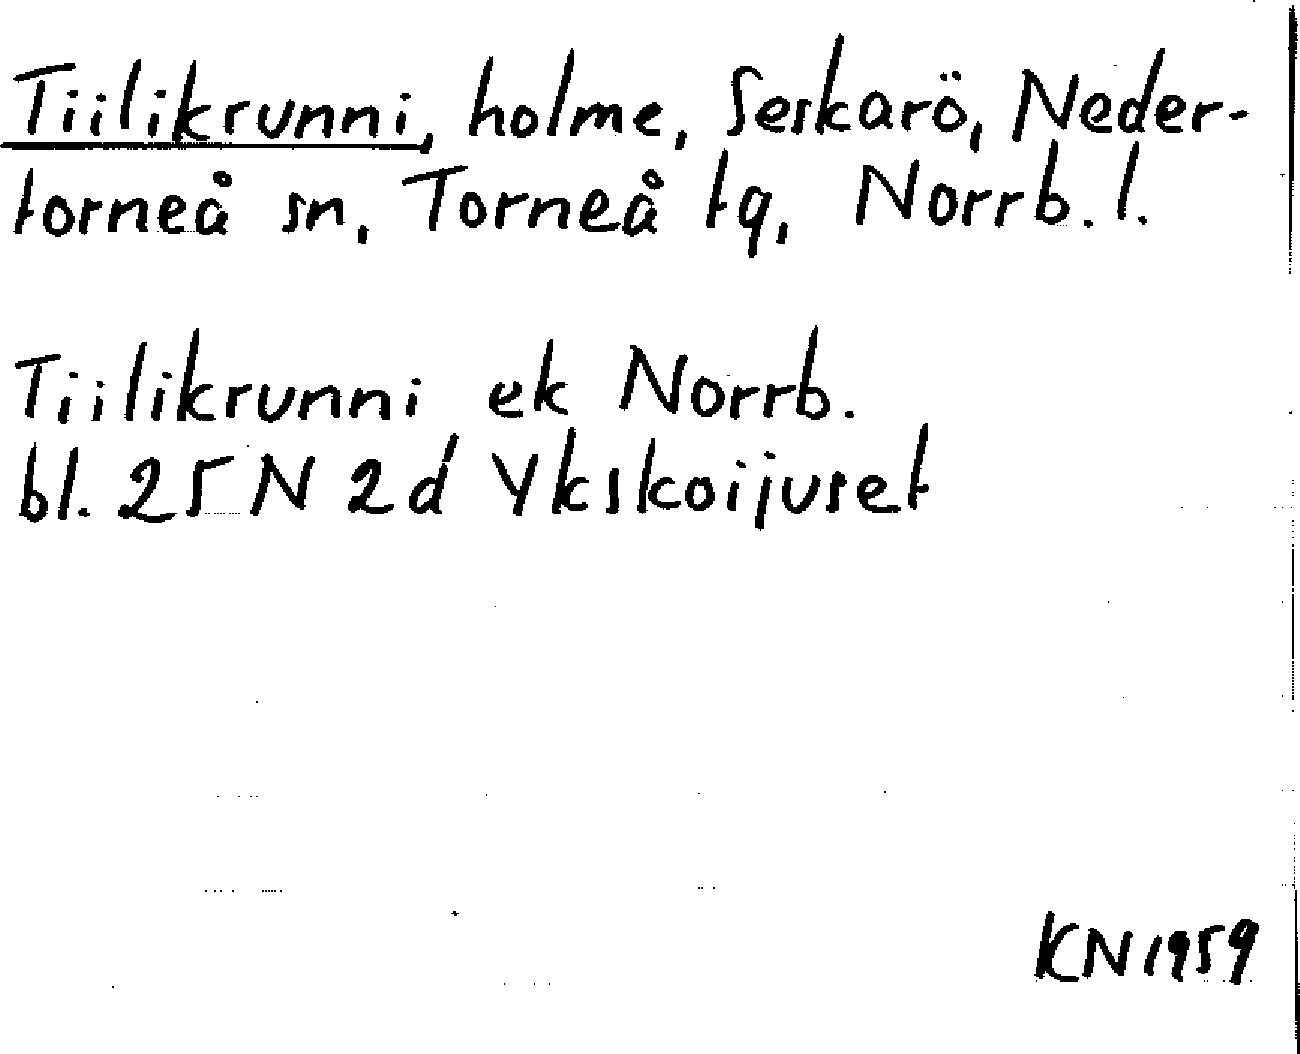 Tiilikrunni, holme, Seskarö, Neder-
torneå sn, Torneå tg, Norrb. l.
Tiilikrunni ek Norrb.
bl. 25 N 2d Ykskoijuset
KN 1959